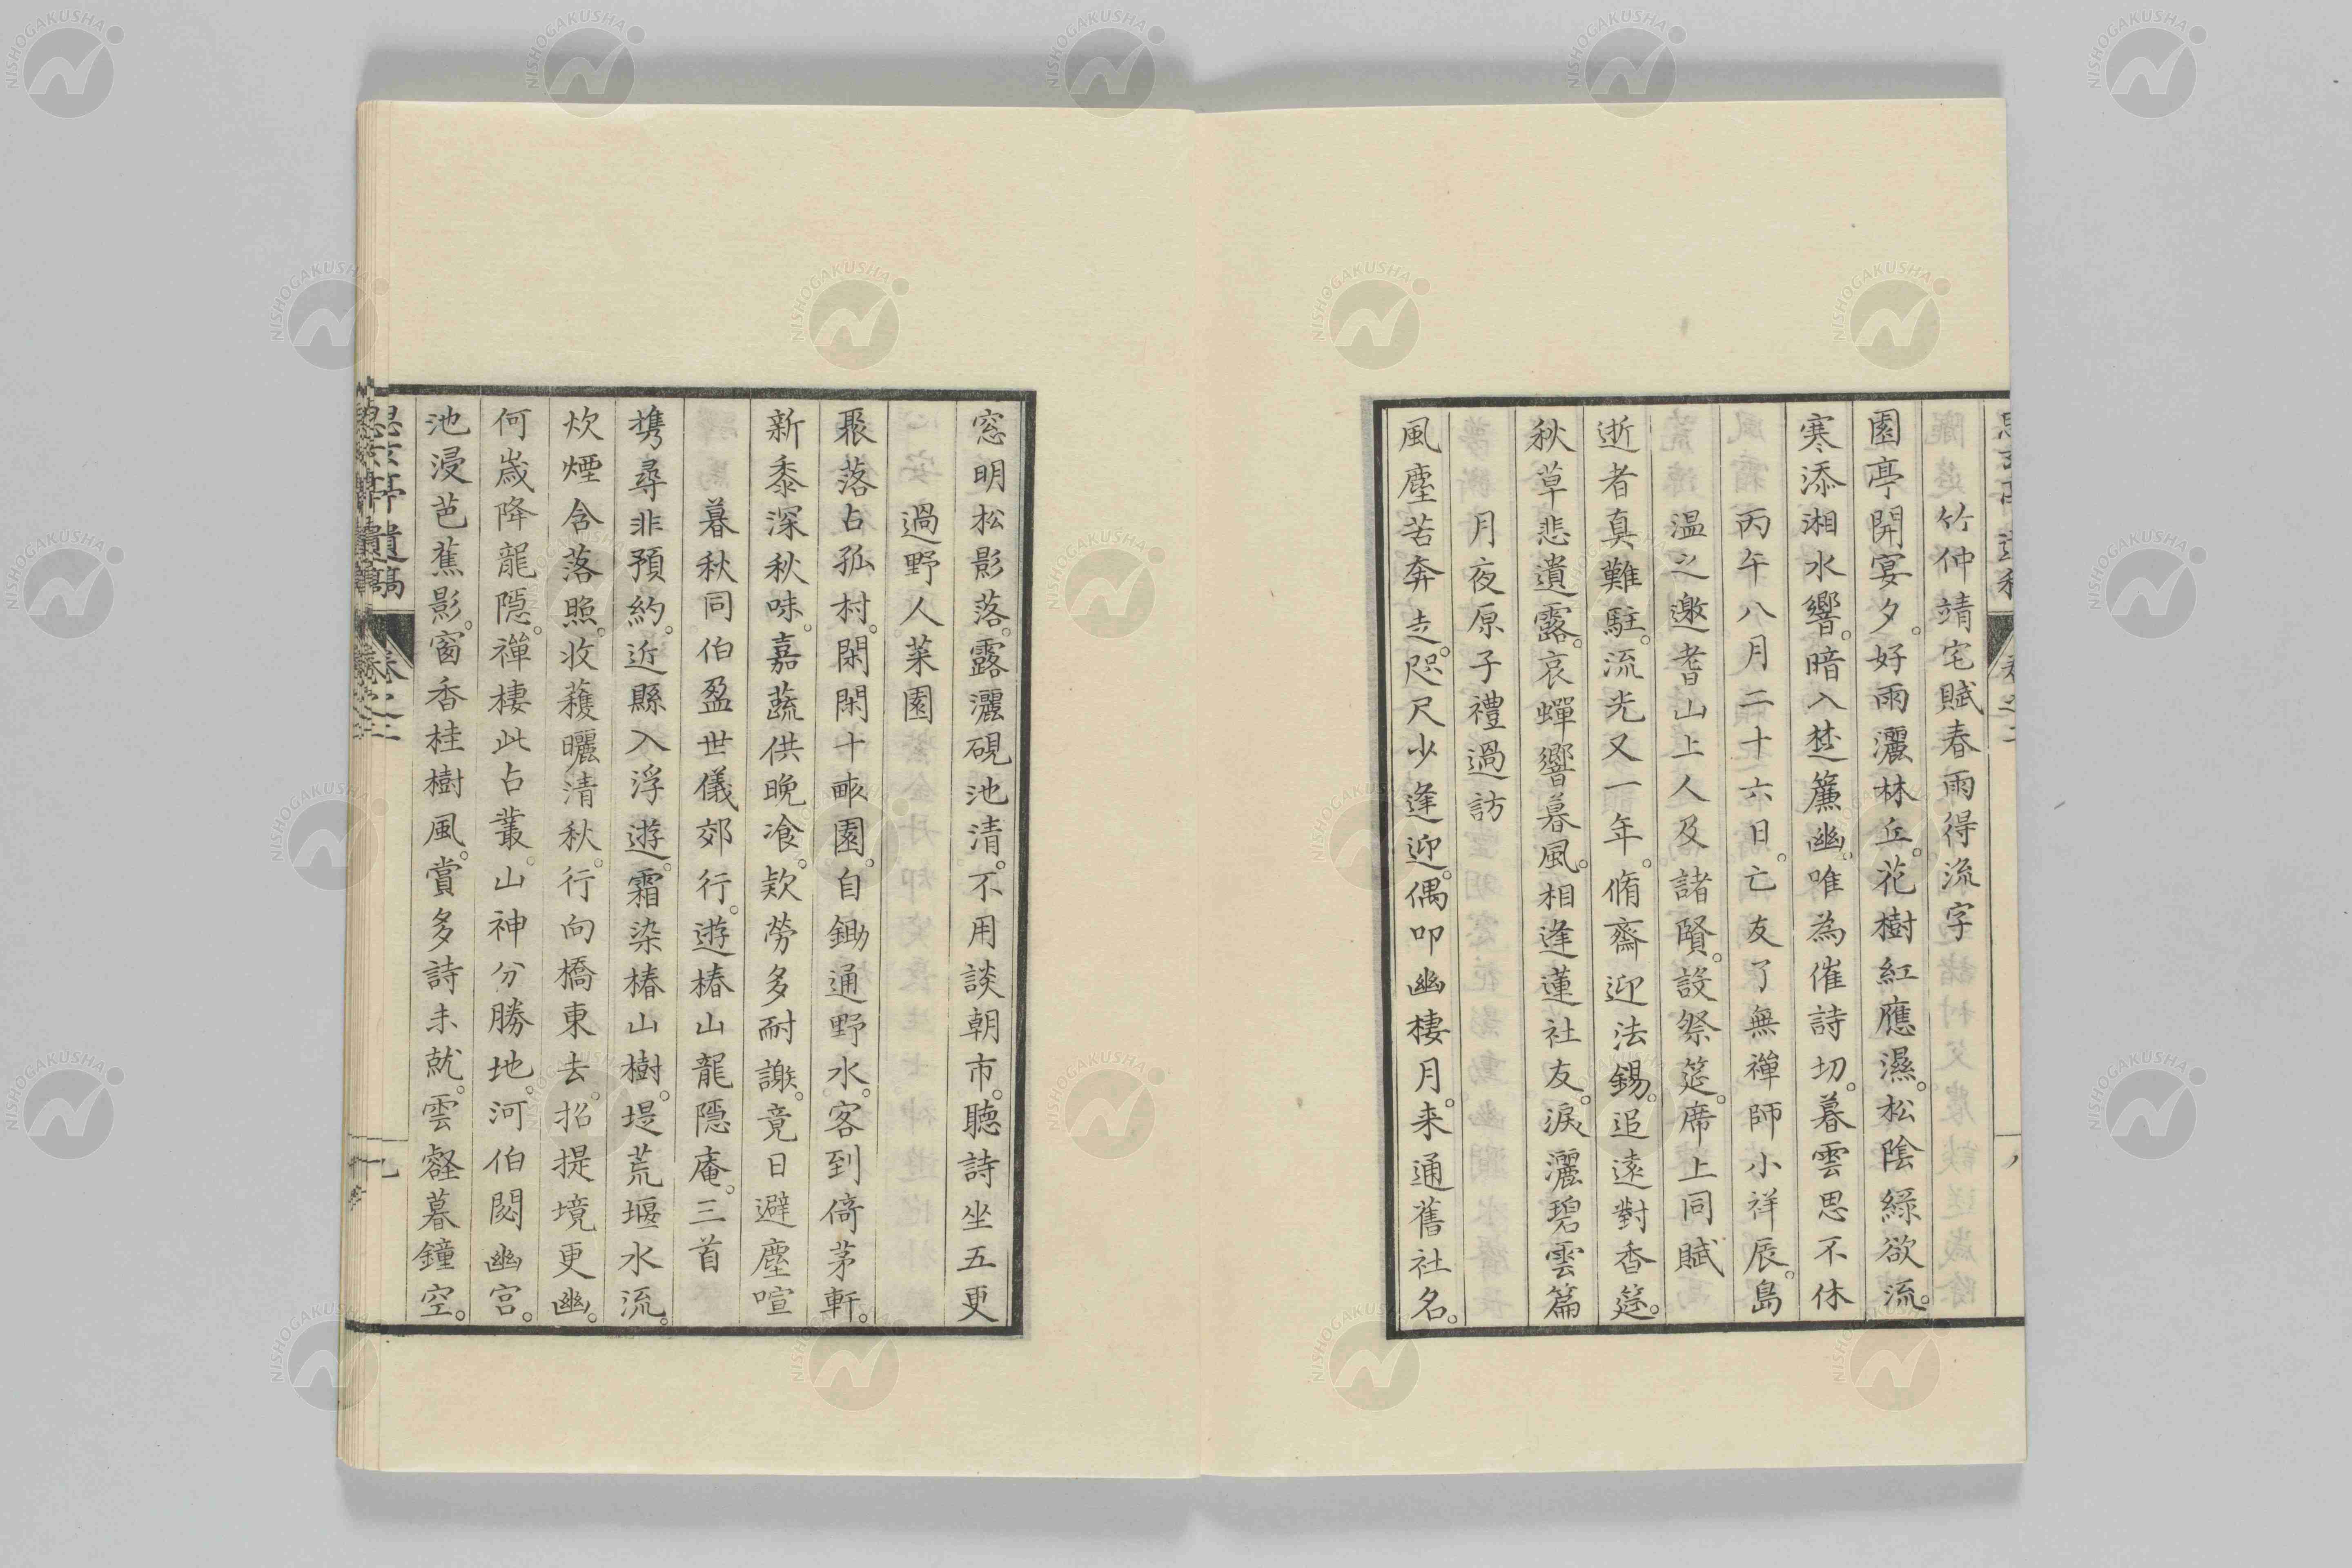 竹仲靖宅賦春雨得流字
園亭開宴夕。好雨灑林丘。花樹紅應濕。松陰綠欲流。
寒添湘水響。暗入楚簾幽。唯為催詩切。暮雲思不休
丙午八月二十六日。亡友了無禪師小祥辰。島
温之邀耆山上人及諸賢。設祭筵。席上同賦
逝者真難駐。流光又一年。脩齋迎法錫。追遠對香筵。
秋草悲遺露。哀蟬響暮風。相逢蓮社友。淚灑碧雲篇
月夜原子禮過訪
風塵苦奔走。咫尺少逢迎。偶叩幽棲月。来通舊社名。
窓明松影落。露灑硯池清。不用談朝市。聽詩坐五更
過野人菜園
聚落占孤村。閑閑十畝園。自鋤通野水。客到倚茅軒。
新黍深秋味。嘉蔬供晩飡。欵勞多耐謝。竟日避塵喧
暮秋同伯盈世儀郊行。遊椿山龍隠庵。三首
携尋非預約。近縣入浮遊。霜染椿山樹。堤荒堰水流。
炊煙含落照。收穫曬清秋。行向橋東去。招提境更幽。
何歳降龍隠。禪棲此占叢。山神分勝地。河伯閟幽宮。
池浸芭蕉影。窗香桂樹風。賞多詩未就。雲壑暮鐘空。
思玄亭遺稿
卷之二
九
NISHOGAKUSHA